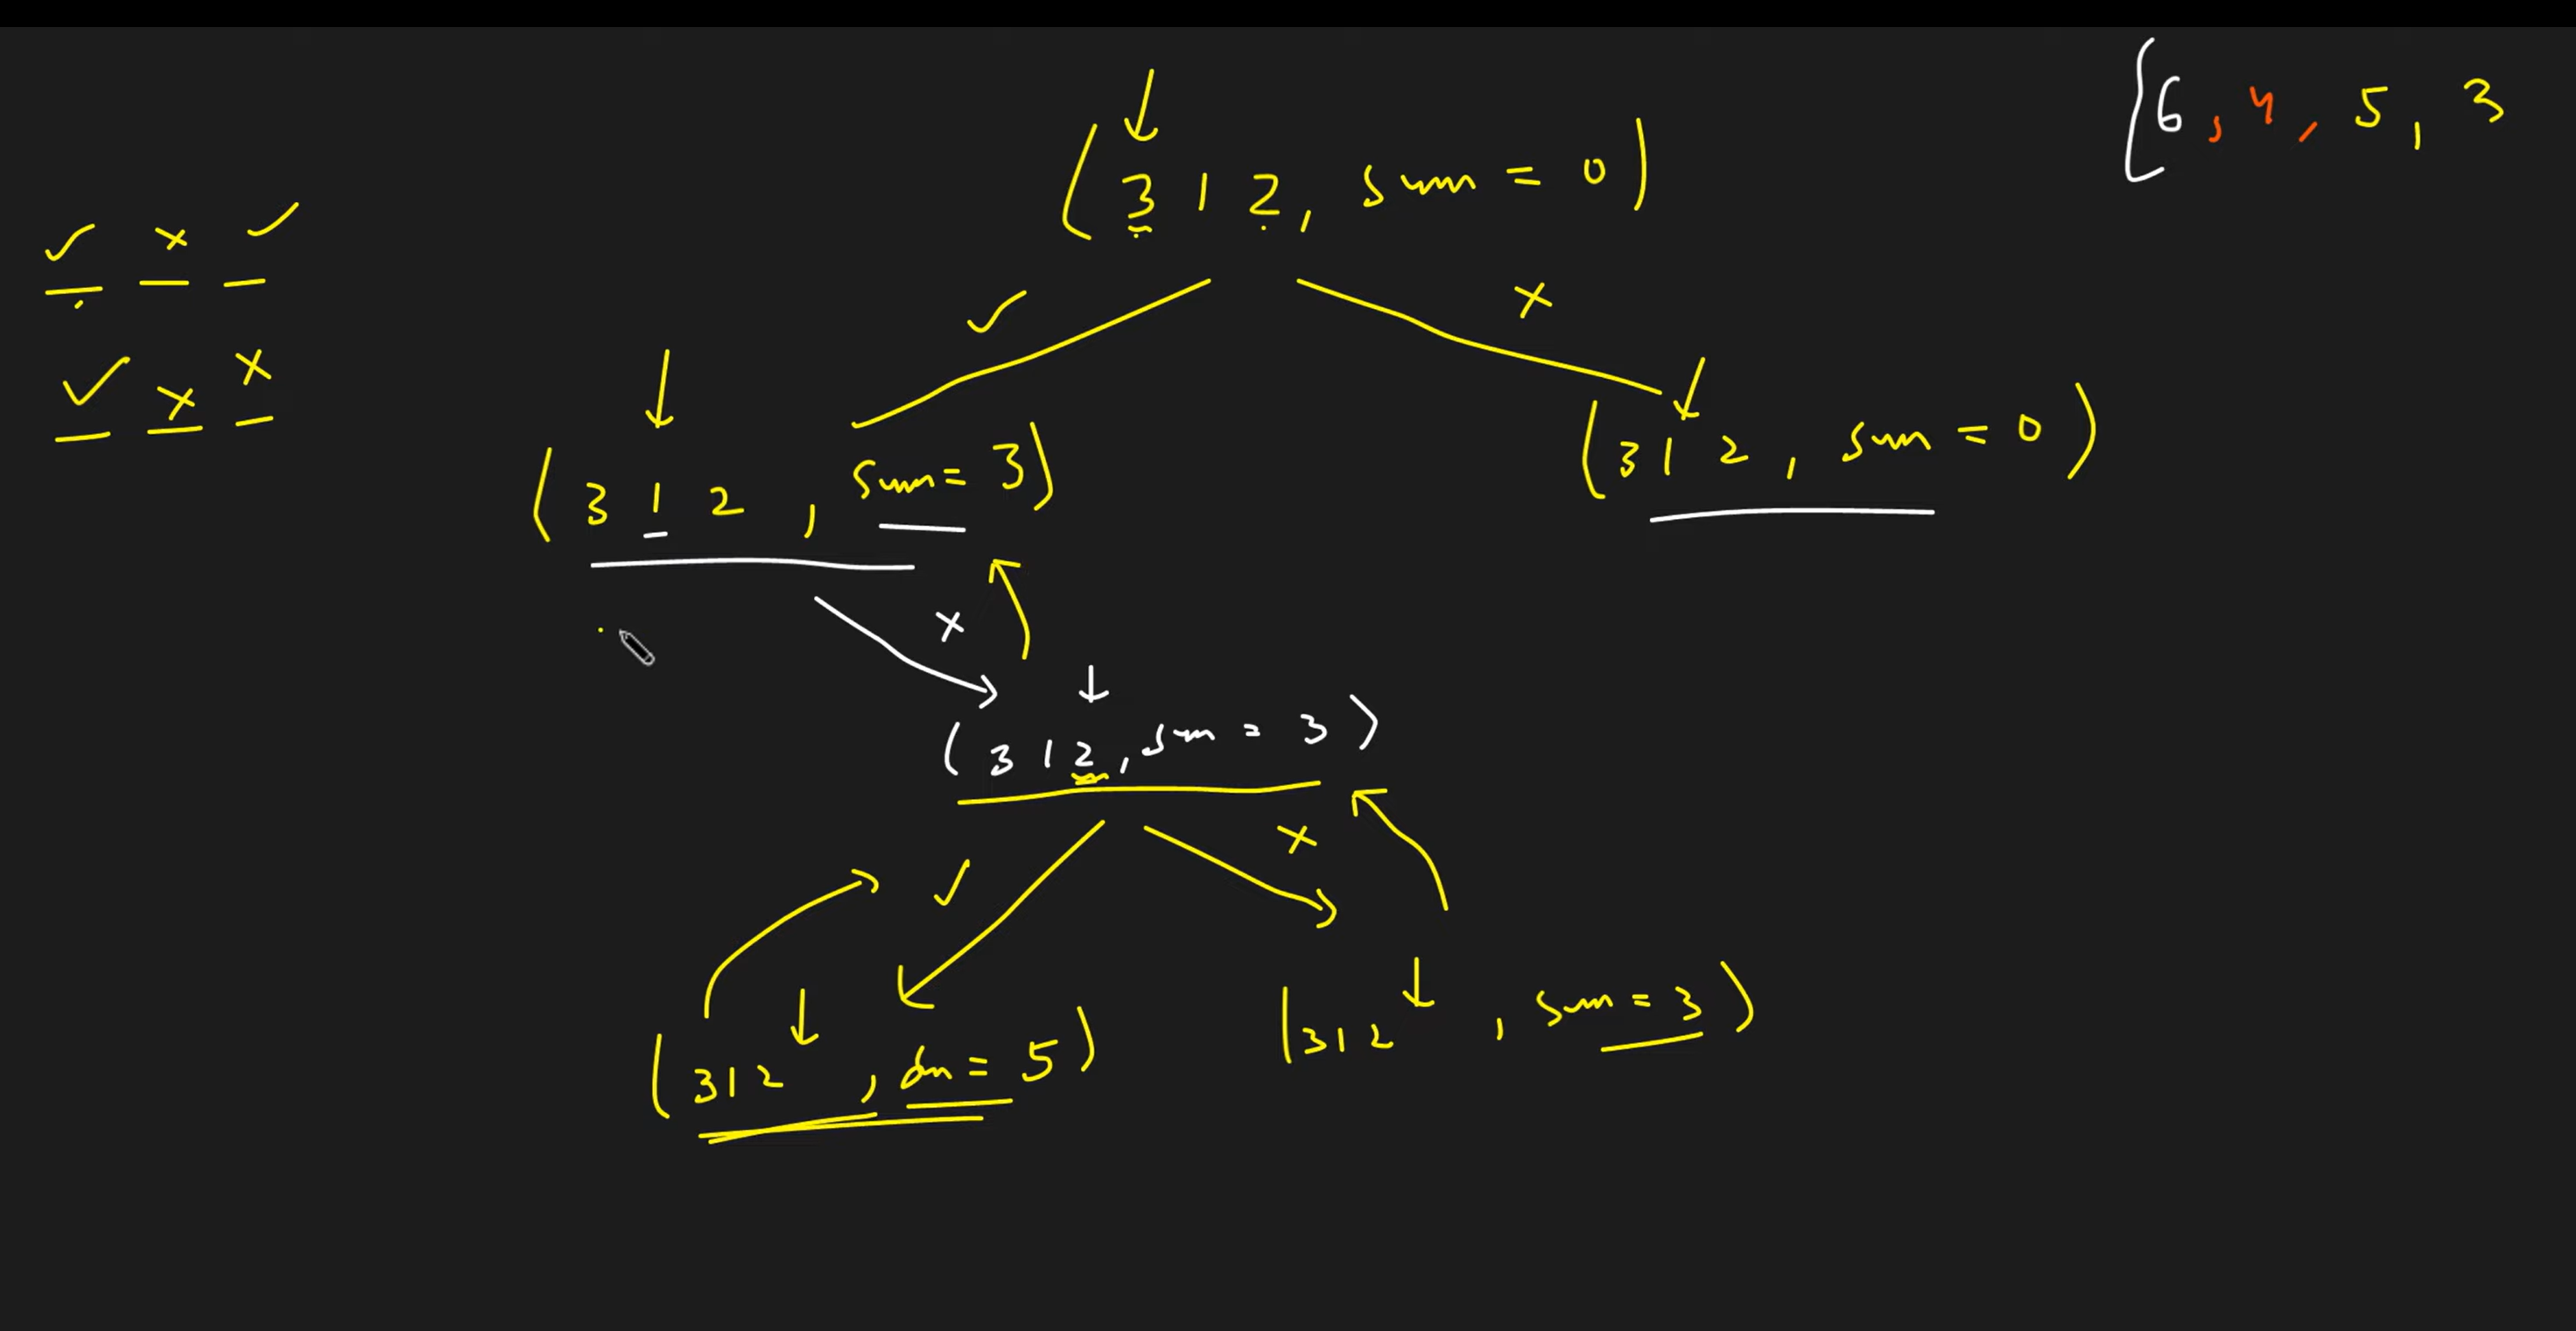 [6, 4, 5, 3
(3 1 2, sum = 0)
✓ x ✓
✓ x
✓ x x
(3 1 2, sum = 3)
(3 1 2, sum = 0)
x
(3 1 2, sum = 3)
✓ x
(3 1 2, sum = 5)
(3 1 2, sum = 3)